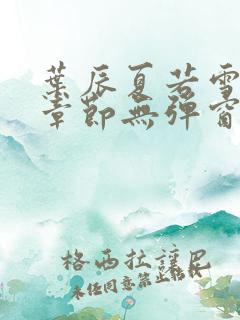 葉辰夏若雪
章節無彈窗
格西拉讓尼
未经同意禁止转载